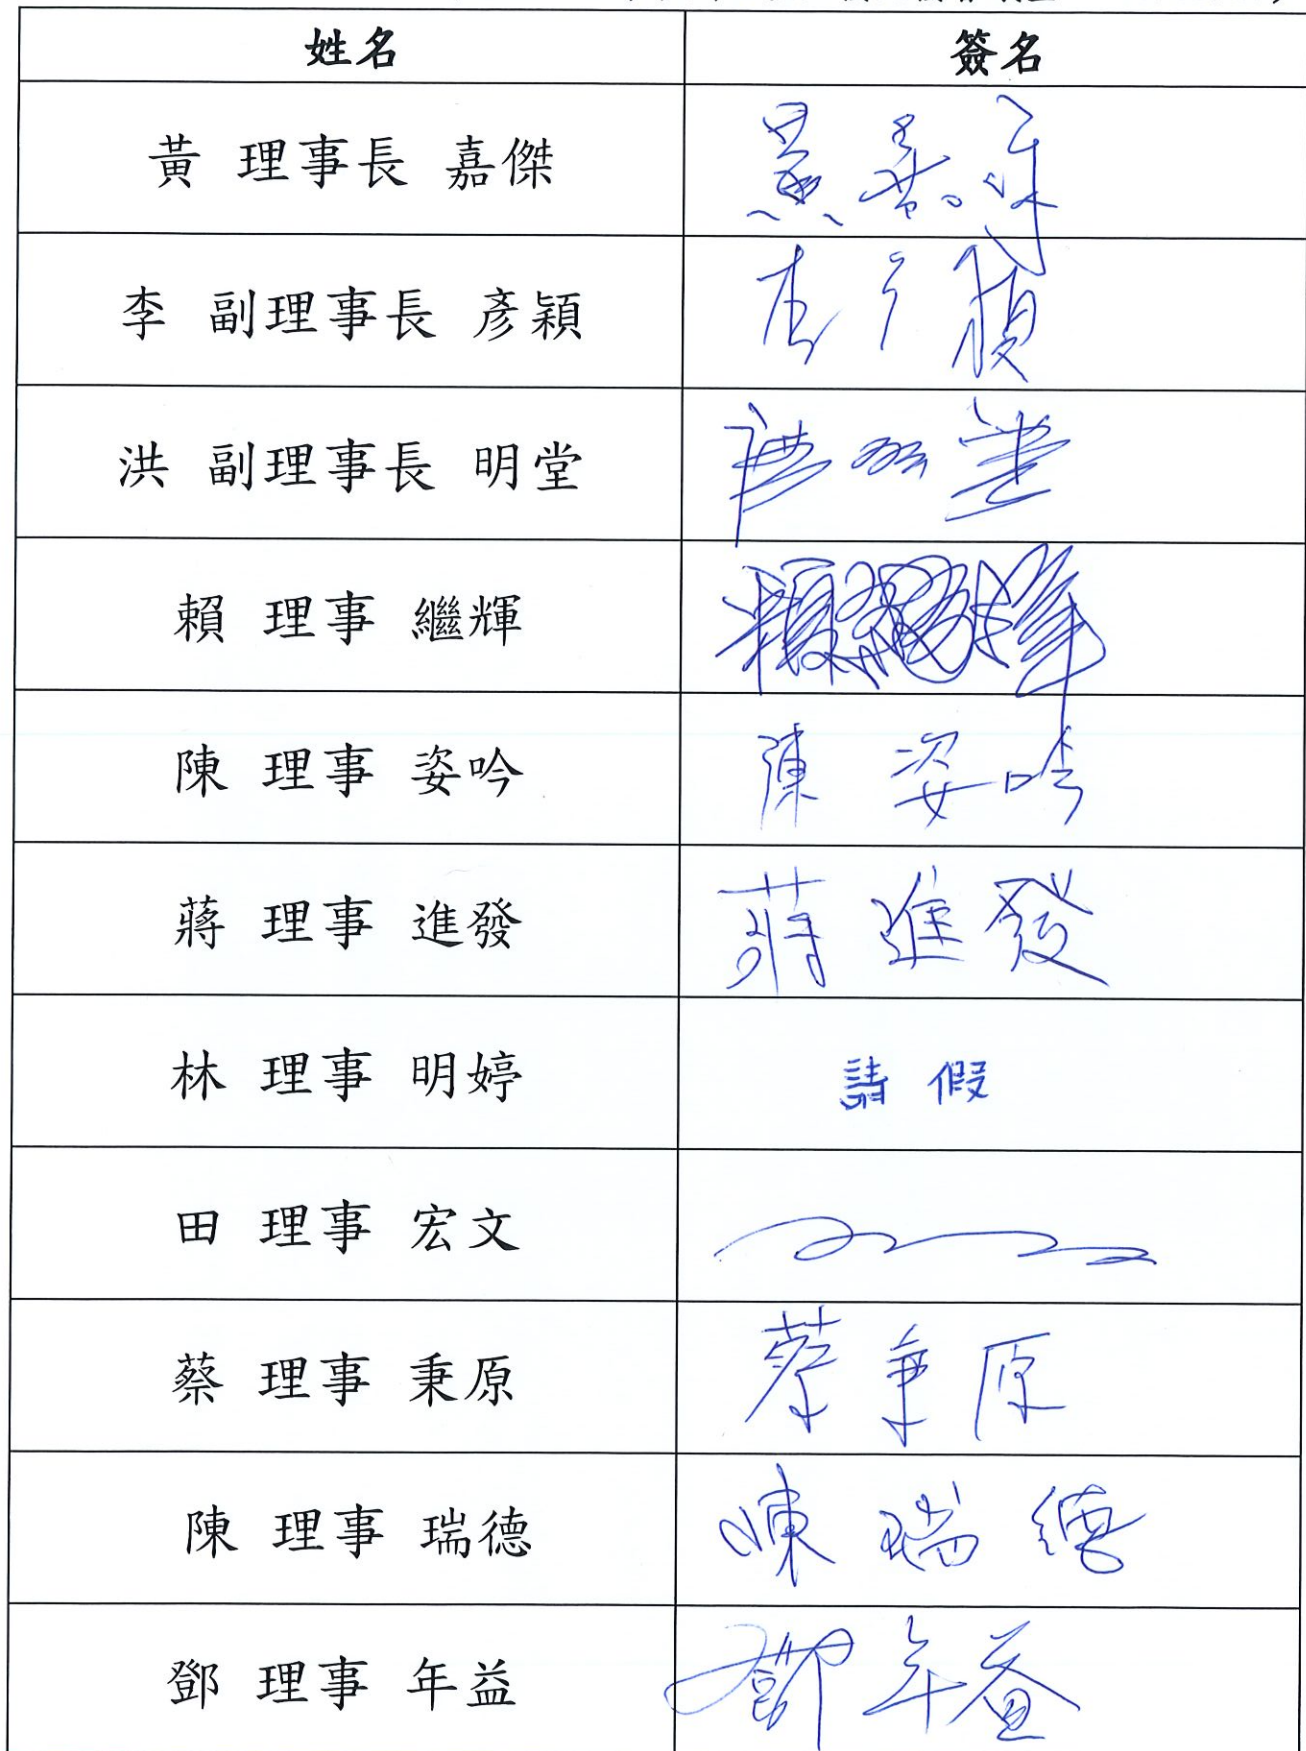 姓名 簽名
黃 理事長 嘉傑 黃嘉傑
李 副理事長 彥穎 李彥穎
洪 副理事長 明堂 洪明堂
賴 理事 繼輝 賴繼輝
陳 理事 姿吟 陳姿吟
蔣 理事 進發 蔣進發
林 理事 明婷 請假
田 理事 宏文
蔡 理事 秉原 蔡秉原
陳 理事 瑞德 陳瑞德
鄧 理事 年益 鄧年益